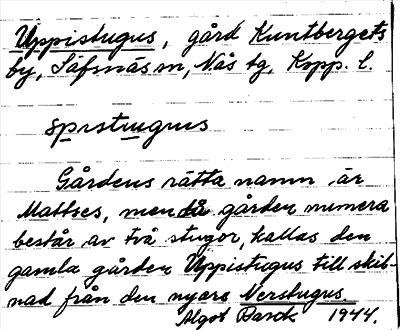 Uppistugus, gård Kuntbergets
by, Säfsnäs sn, Nås tg, Kopp. l.
Gårdens rätta namn är
Mattses, men då gården numera
består av två stugor, kallas den
gamla gården Uppistugus till skill-
nad från den nyare Nerstugus.
Algot Barck 1944.